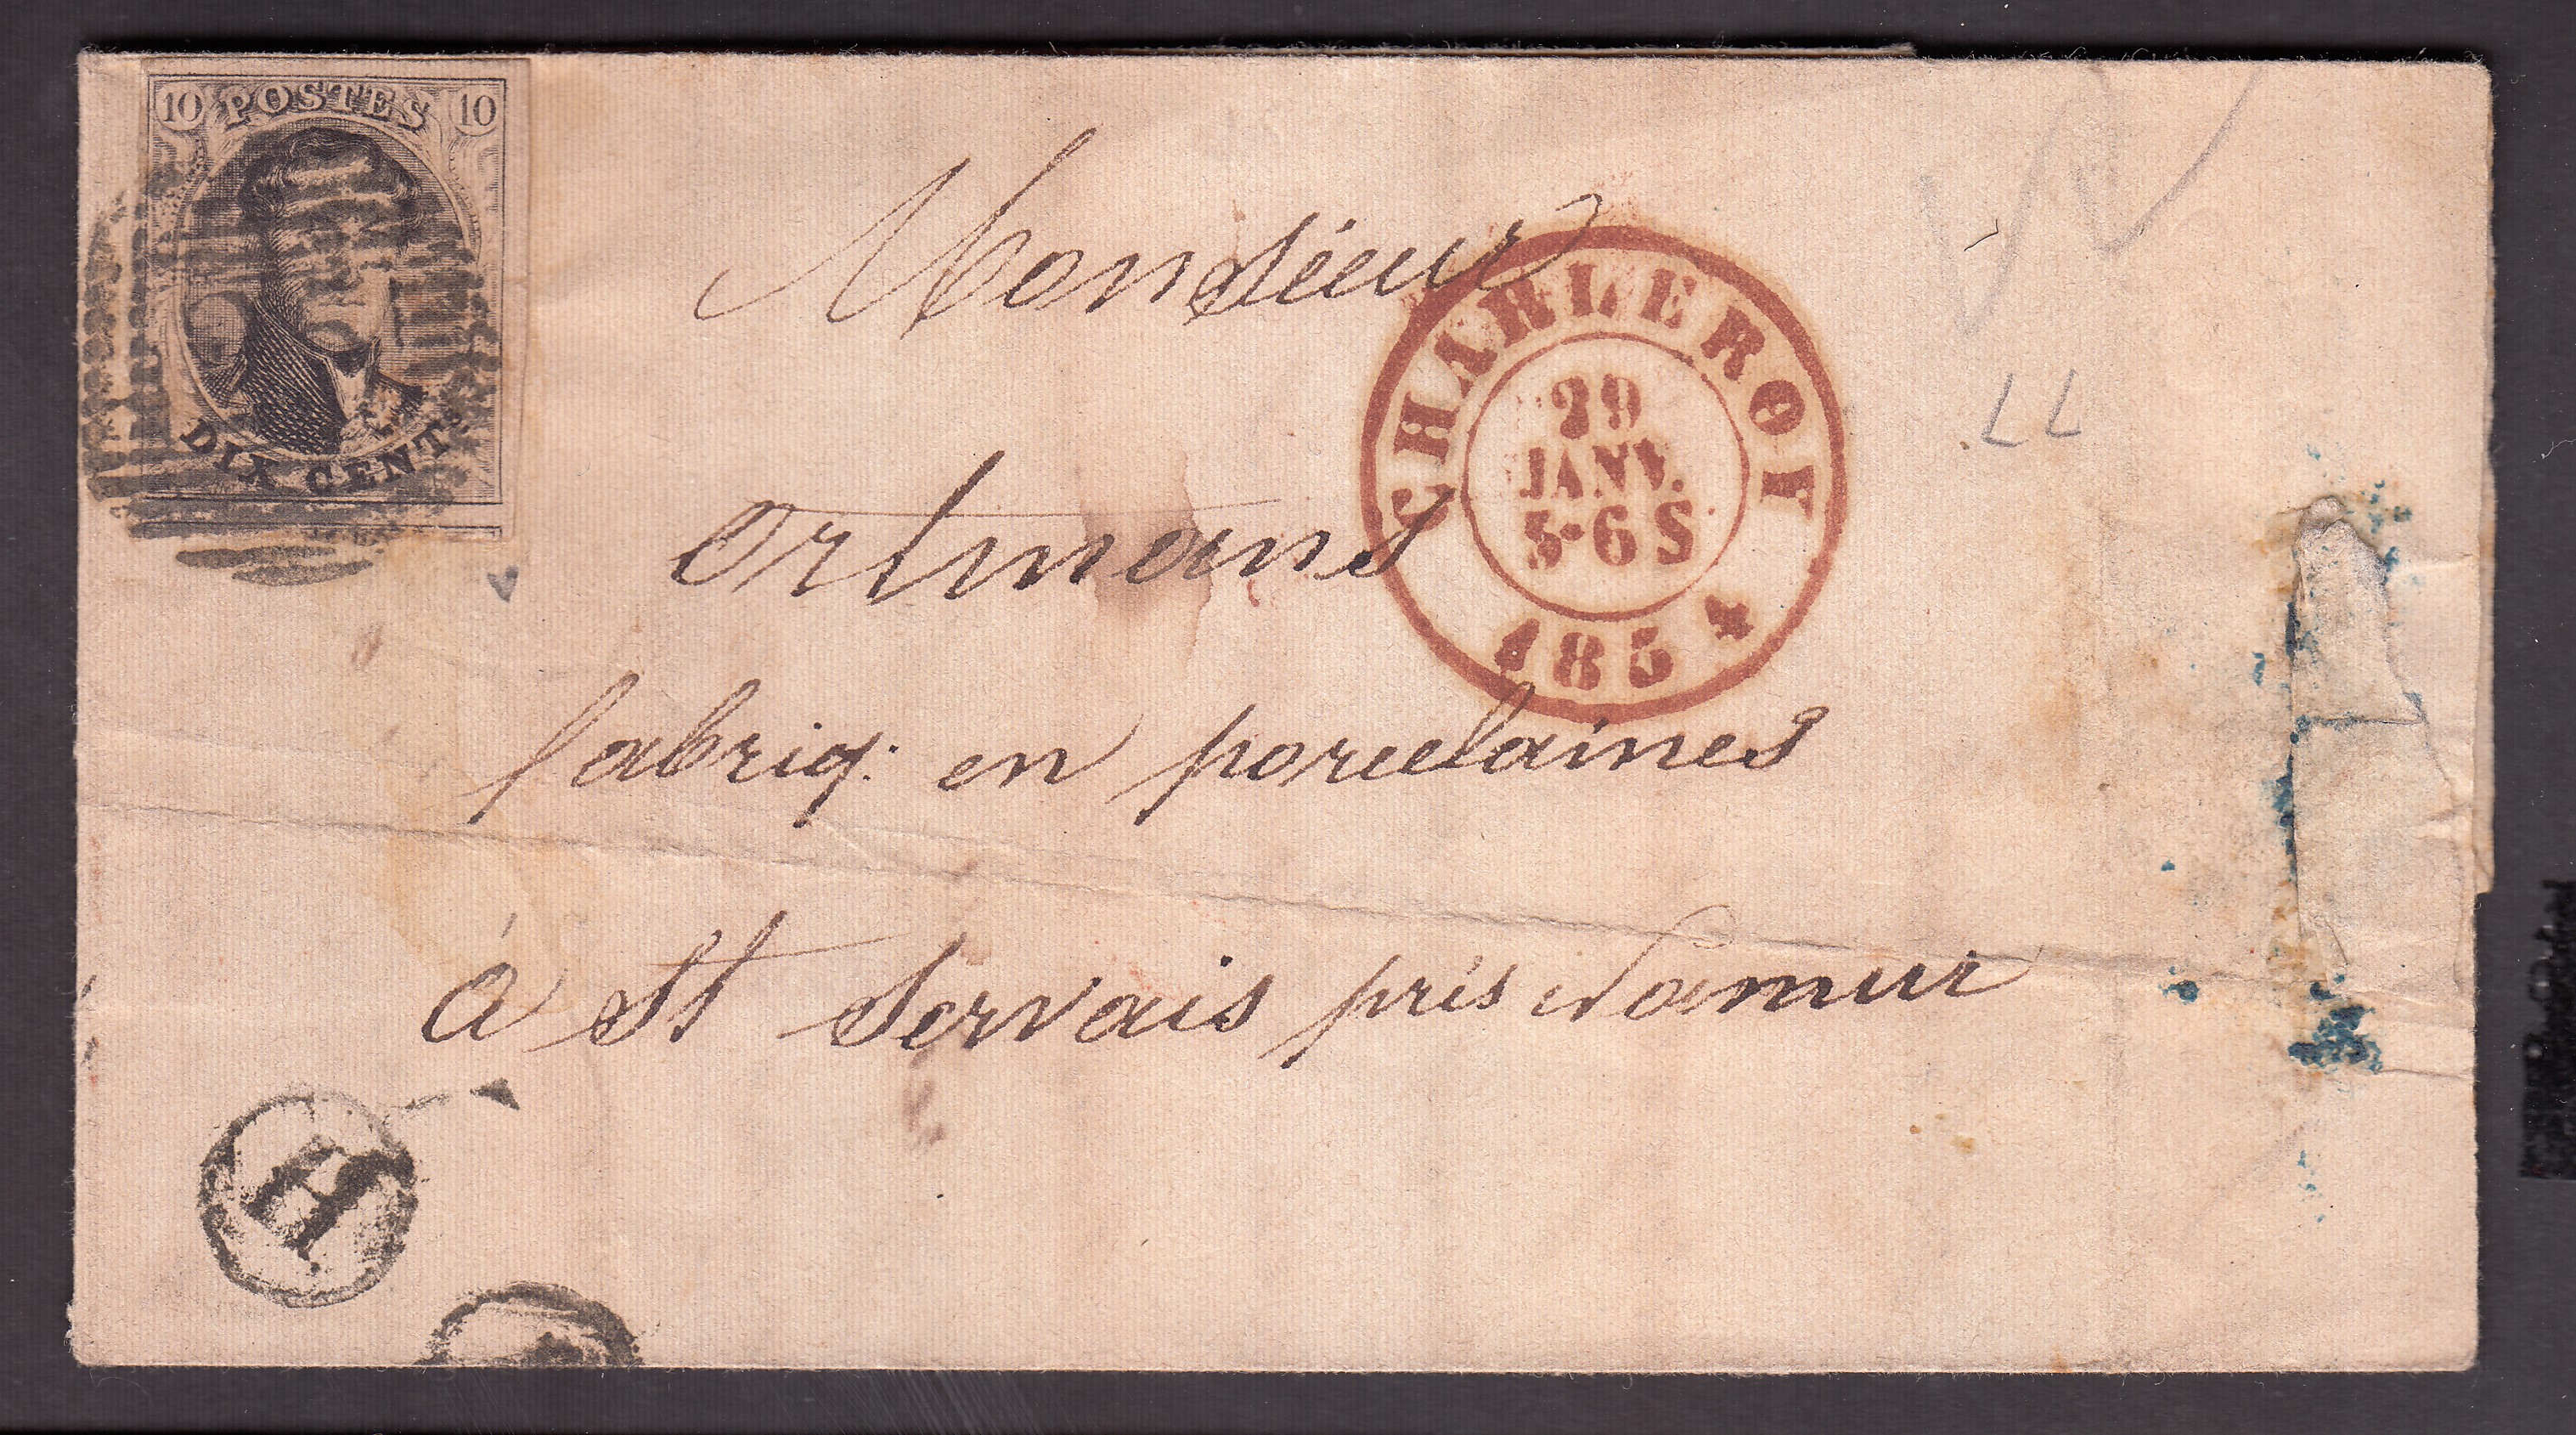 10 POSTES 10
DIX CENTS
Monsieur
Ortmans
fabriq: en porcelaines
à St Servais près Namur
CHARLEROI
29
JANV.
5-6 S
185
LL
H